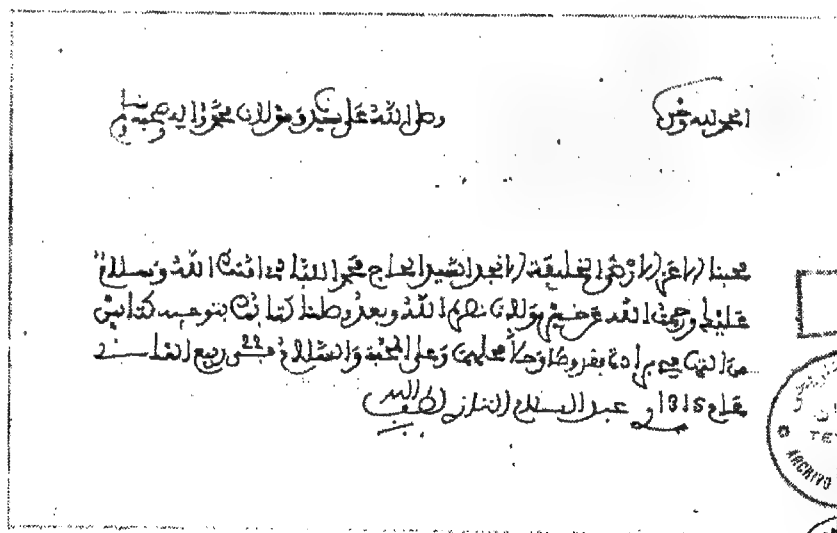 الحمد لله وحده
وصلى الله على سيدنا ومولانا محمد وآله وصحبه وسلم
محبنا الأعز الأرضى الخليفة الأنجد السيد الحاج محمد اللبادي أمنك الله وسلام
عليك ورحمت الله عن خير مولانا نصره الله وبعد وصلنا كتابك بتوجيه
من وعلى المحبة والسلام في 22 ربيع الثاني
عام 1315 عبد السلام التازي لطف الله به
TE
ARCHIVO